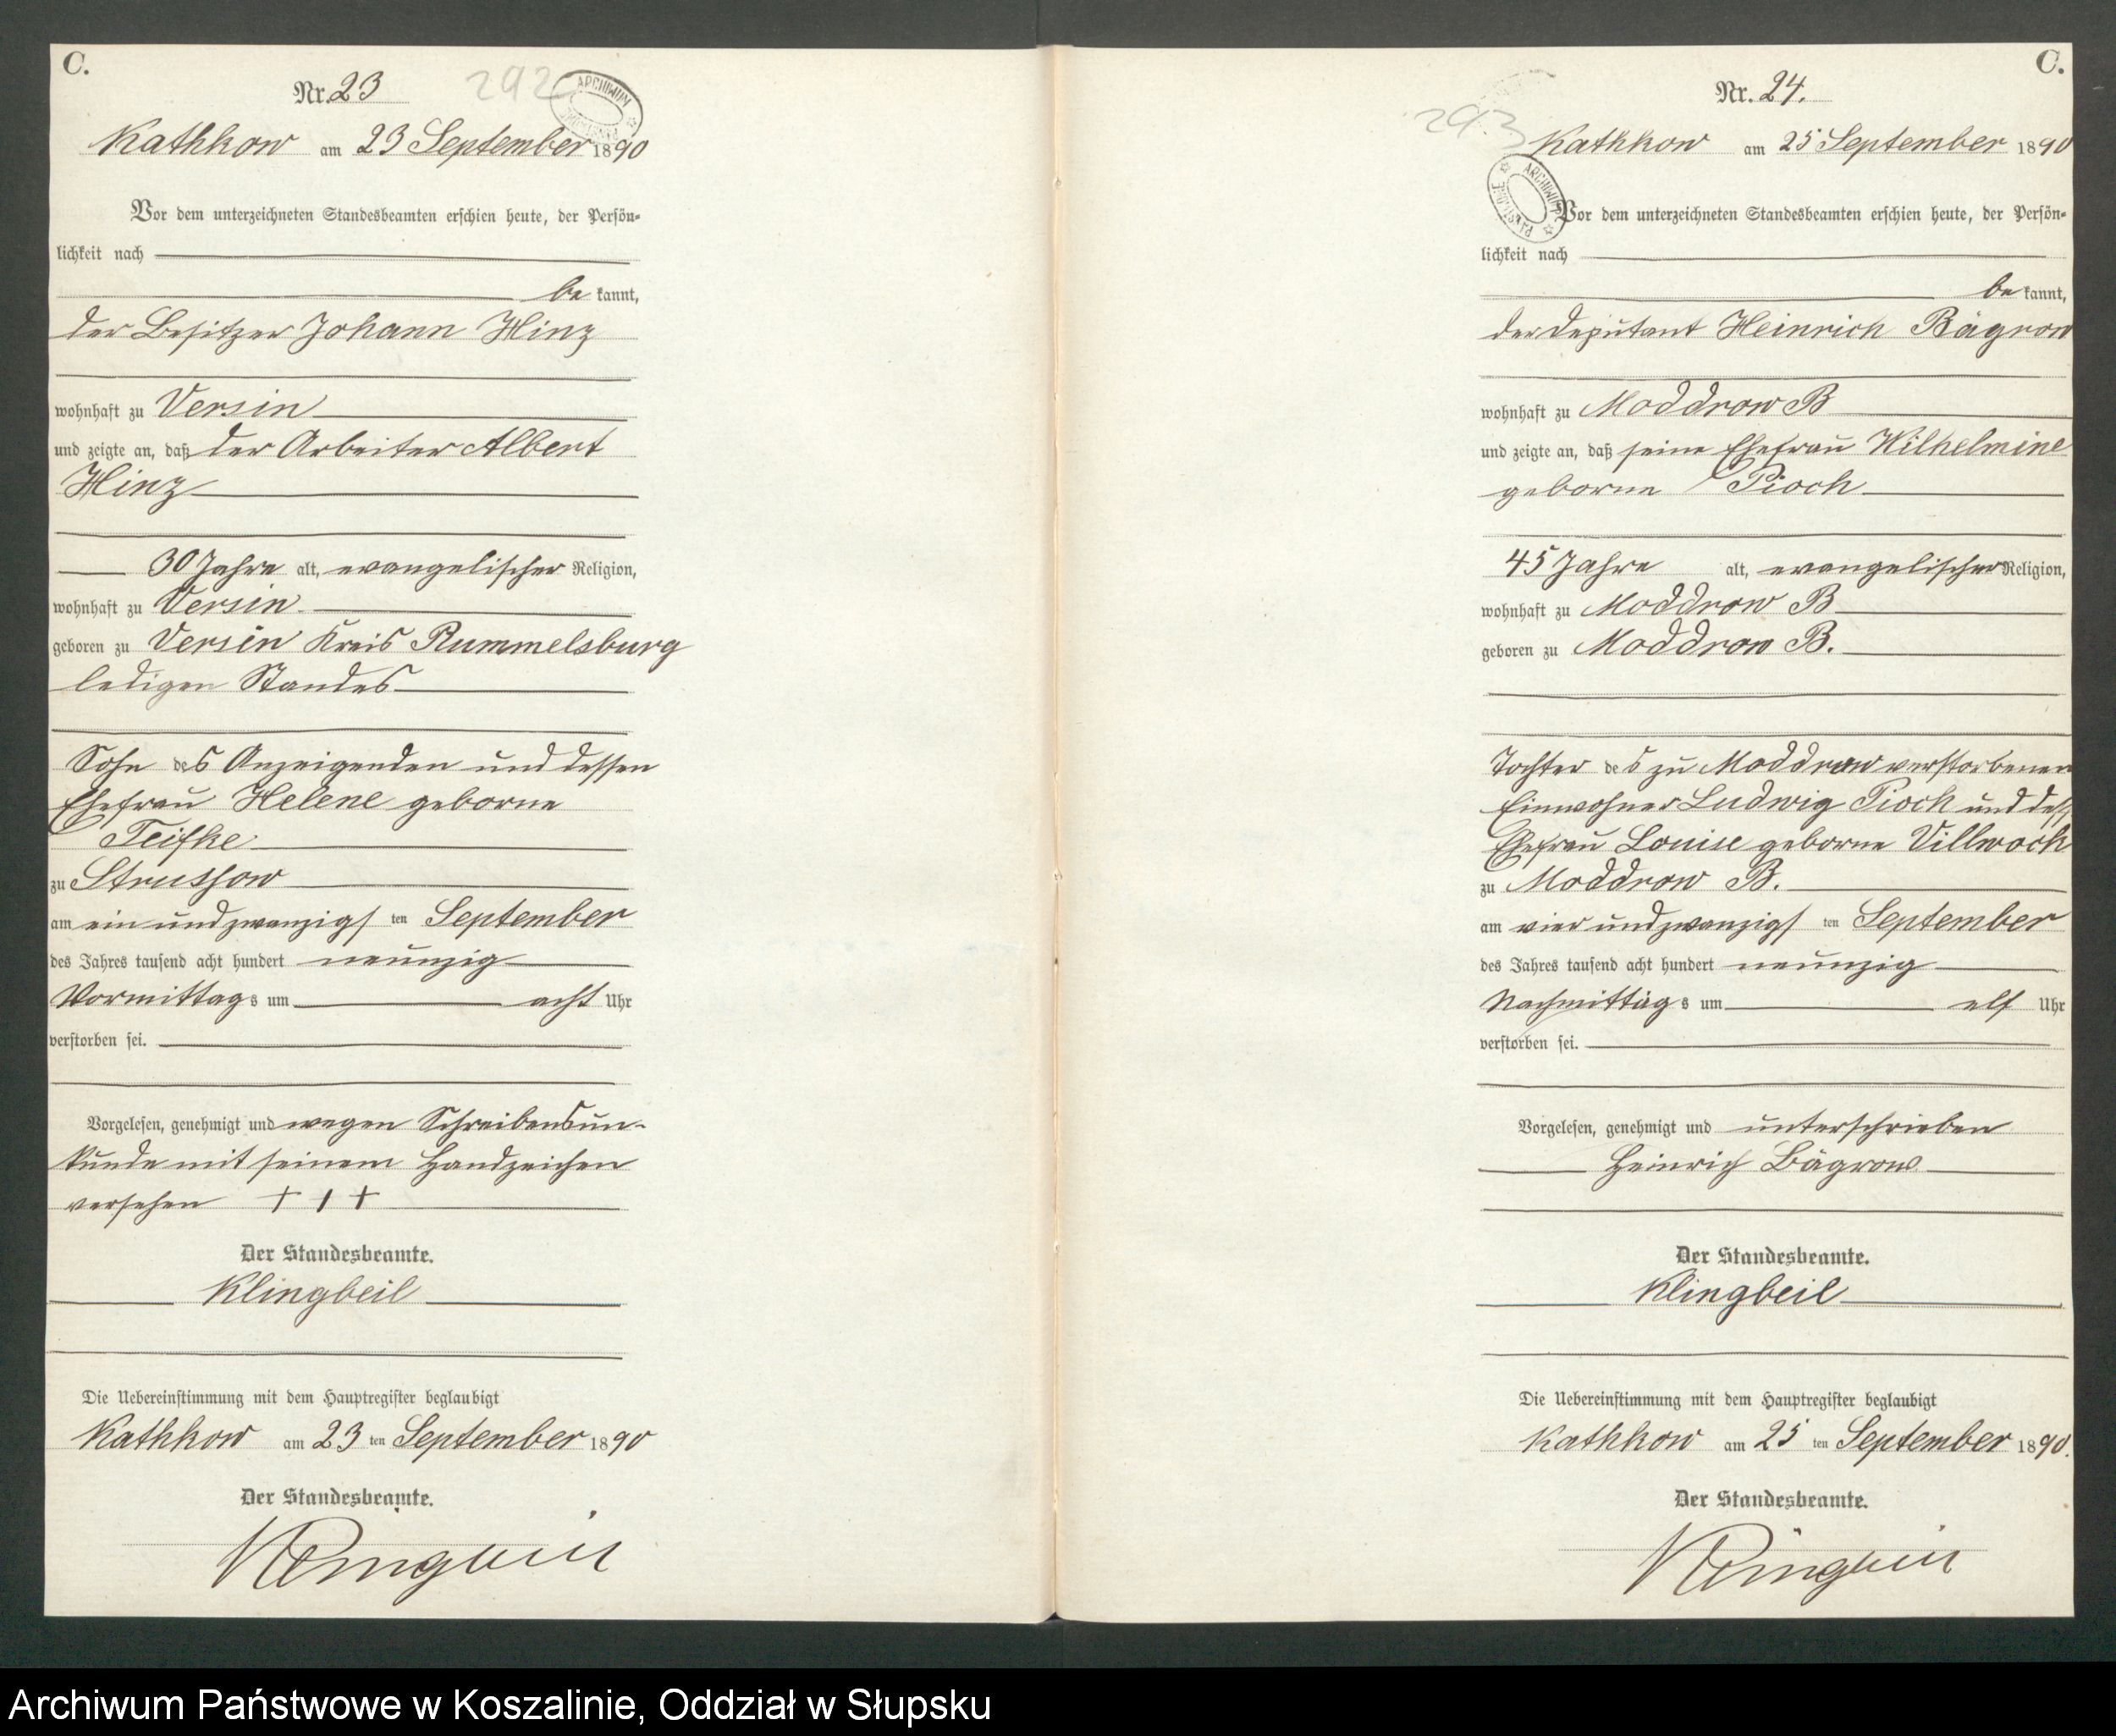 C.
Nr. 23
292
ARCHIWUM
Kathkow am 23 September 1890
Vor dem unterzeichneten Standesbeamten erschien heute, der Persön-
lichkeit nach
be kannt,
der Besitzer Johann Hinz
wohnhaft zu Versin
und zeigte an, daß der Arbeiter Albert
Hinz
30 Jahre alt, evangelischer Religion,
wohnhaft zu Versin
geboren zu Versin Kreis Rummelsburg
ledigen Standes
Sohn des Anzeigenden und dessen
Ehefrau Helene geborne
Teifke
zu Strussow
am ein und zwanzigsten September
des Jahres tausend acht hundert neunzig
Vormittags um acht Uhr
verstorben sei.
Vorgelesen, genehmigt und wegen Schreibensun-
kunde mit seinem Handzeichen
versehen + + +
Der Standesbeamte.
Klingbeil
Die Uebereinstimmung mit dem Hauptregister beglaubigt
Kathkow am 23 ten September 1890
Der Standesbeamte.
Klingbeil
C.
Nr. 24.
293
Kathkow am 25 September 1890
ARCHIWUM PAŃSTWOWE
Vor dem unterzeichneten Standesbeamten erschien heute, der Persön-
lichkeit nach
be kannt,
der Deputant Heinrich Bägrow
wohnhaft zu Moddrow B
und zeigte an, daß seine Ehefrau Wilhelmine
geborne Pioch
45 Jahre alt, evangelischer Religion,
wohnhaft zu Moddrow B
geboren zu Moddrow B.
Tochter des zu Moddrow verstorbenen
Einwohner Ludwig Pioch und dess
Ehefrau Louise geborne Villwock
zu Moddrow B.
am vier und zwanzigsten September
des Jahres tausend acht hundert neunzig
Nachmittags um elf Uhr
verstorben sei.
Vorgelesen, genehmigt und unterschrieben
Heinrich Bägrow
Der Standesbeamte.
Klingbeil
Die Uebereinstimmung mit dem Hauptregister beglaubigt
Kathkow am 25 ten September 1890.
Der Standesbeamte.
Klingbeil
Archiwum Państwowe w Koszalinie, Oddział w Słupsku